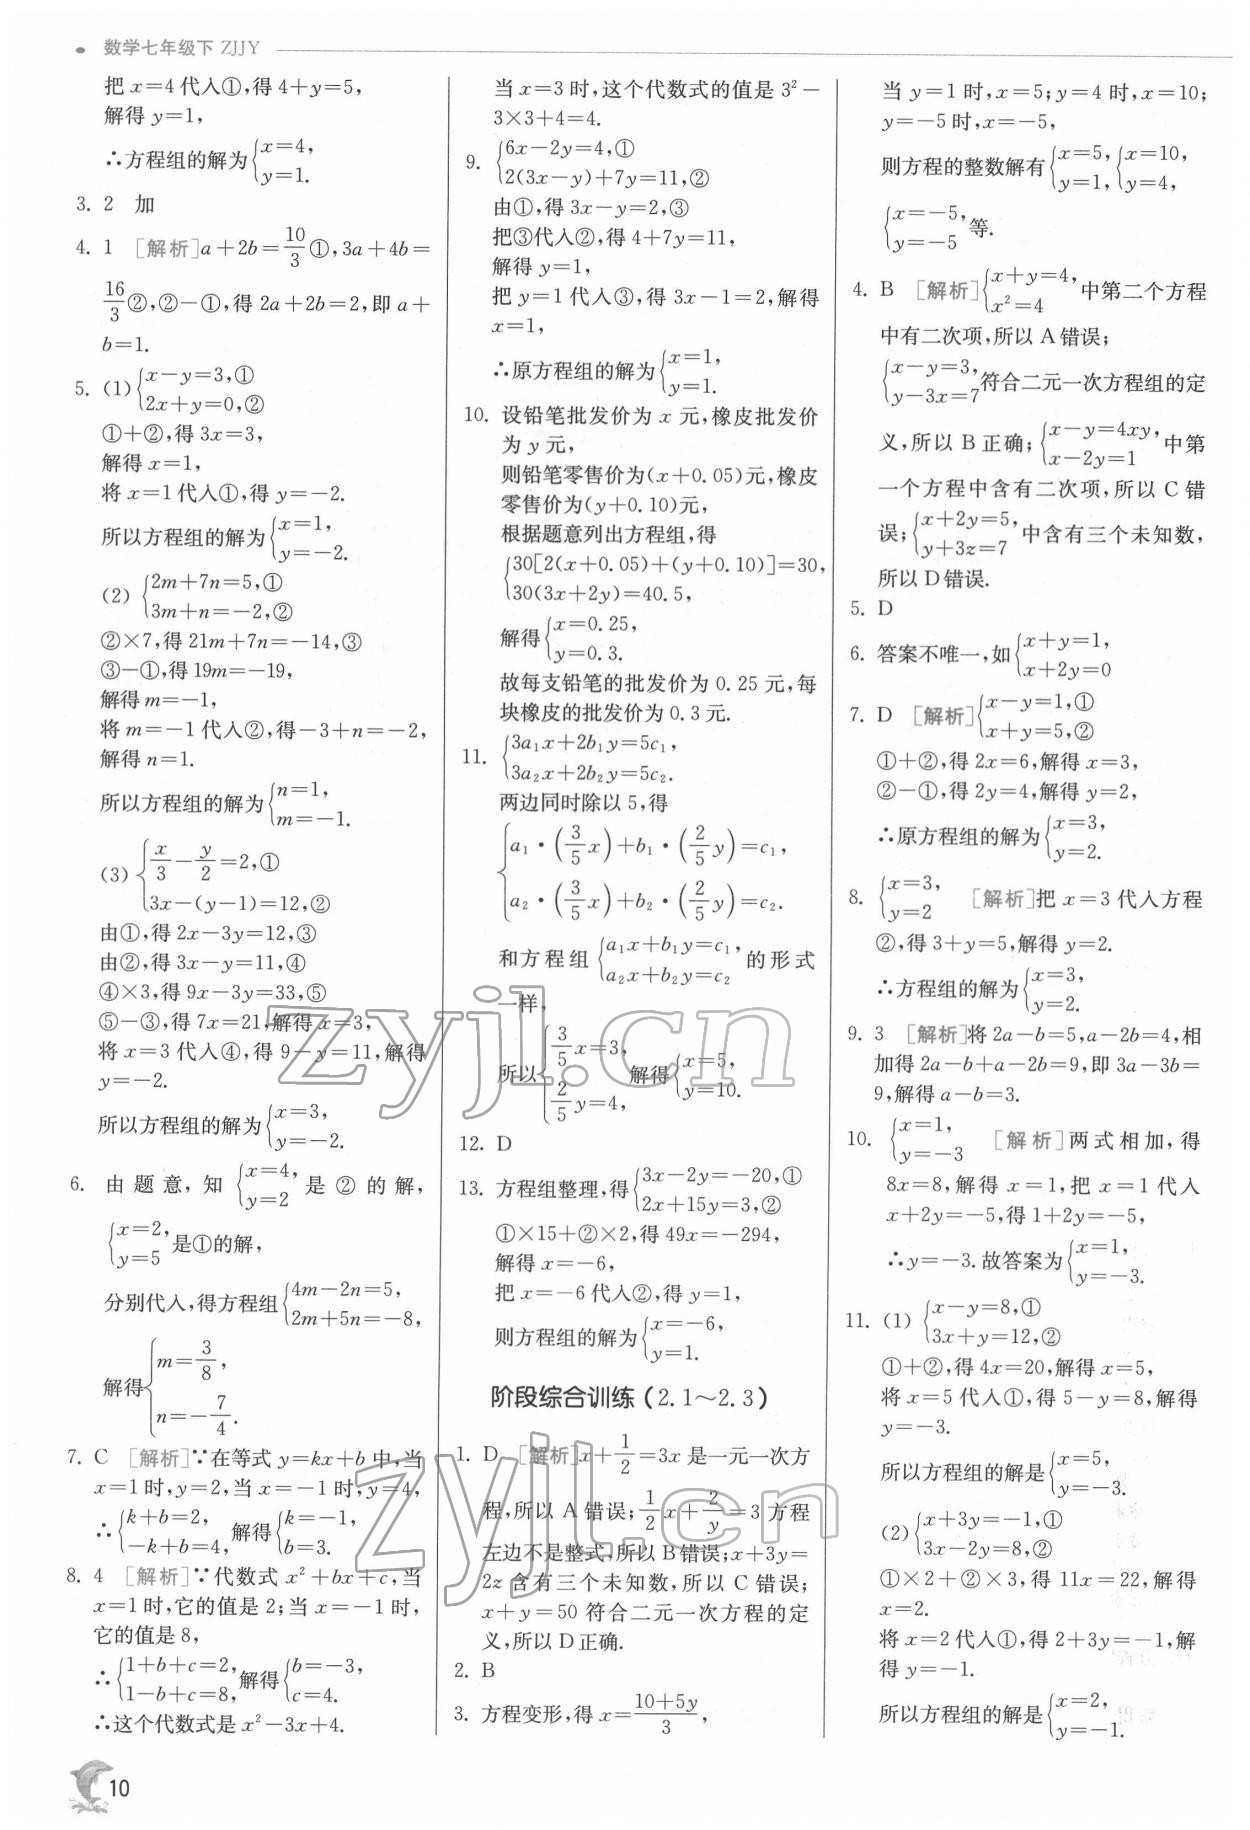 数学七年级下 ZJJY
把 x=4 代入①,得 4+y=5,
解得 y=1,
∴方程组的解为{x=4,
y=1.
3. 2 加
4. 1 [解析]a+2b=10/3①,3a+4b=
16/3②,②-①,得 2a+2b=2,即 a+
b=1.
5. (1){x-y=3,①
2x+y=0,②
①+②,得 3x=3,
解得 x=1,
将 x=1 代入①,得 y=-2.
所以方程组的解为{x=1,
y=-2.
(2){2m+7n=5,①
3m+n=-2,②
②×7,得 21m+7n=-14,③
③-①,得 19m=-19,
解得 m=-1,
将 m=-1 代入②,得-3+n=-2,
解得 n=1.
所以方程组的解为{n=1,
m=-1.
(3){x/3-y/2=2,①
3x-(y-1)=12,②
由①,得 2x-3y=12,③
由②,得 3x-y=11,④
④×3,得 9x-3y=33,⑤
⑤-③,得 7x=21,解得 x=3,
将 x=3 代入④,得 9-y=11,解得
y=-2.
所以方程组的解为{x=3,
y=-2.
6. 由题意,知{x=4,
y=2 是②的解,
{x=2,
y=5 是①的解,
分别代入,得方程组{4m-2n=5,
2m+5n=-8,
解得{m=3/8,
n=-7/4.
7. C [解析]∵在等式 y=kx+b 中,当
x=1 时,y=2,当 x=-1 时,y=4,
∴{k+b=2,
-k+b=4, 解得{k=-1,
b=3.
8. 4 [解析]∵代数式 x²+bx+c,当
x=1 时,它的值是 2;当 x=-1 时,
它的值是 8,
∴{1+b+c=2,
1-b+c=8, 解得{b=-3,
c=4.
∴这个代数式是 x²-3x+4.
当 x=3 时,这个代数式的值是 3²-
3×3+4=4.
9. {6x-2y=4,①
2(3x-y)+7y=11,②
由①,得 3x-y=2,③
把③代入②,得 4+7y=11,
解得 y=1,
把 y=1 代入③,得 3x-1=2,解得
x=1,
∴原方程组的解为{x=1,
y=1.
10. 设铅笔批发价为 x 元,橡皮批发价
为 y 元,
则铅笔零售价为(x+0.05)元,橡皮
零售价为(y+0.10)元,
根据题意列出方程组,得
{30[2(x+0.05)+(y+0.10)]=30,
30(3x+2y)=40.5,
解得{x=0.25,
y=0.3.
故每支铅笔的批发价为 0.25 元,每
块橡皮的批发价为 0.3 元.
11. {3a₁x+2b₁y=5c₁,
3a₂x+2b₂y=5c₂.
两边同时除以 5,得
{a₁·(3/5x)+b₁·(2/5y)=c₁,
a₂·(3/5x)+b₂·(2/5y)=c₂.
和方程组{a₁x+b₁y=c₁,
a₂x+b₂y=c₂ 的形式
一样,
所以{3/5x=3,
2/5y=4, 解得{x=5,
y=10.
12. D
13. 方程组整理,得{3x-2y=-20,①
2x+15y=3,②
①×15+②×2,得 49x=-294,
解得 x=-6,
把 x=-6 代入②,得 y=1,
则方程组的解为{x=-6,
y=1.
阶段综合训练(2.1~2.3)
1. D [解析]x+1/2=3x 是一元一次方
程,所以 A 错误;1/2x+2/y=3 方程
左边不是整式,所以 B 错误;x+3y=
2z 含有三个未知数,所以 C 错误;
x+y=50 符合二元一次方程的定
义,所以 D 正确.
2. B
3. 方程变形,得 x=(10+5y)/3,
当 y=1 时,x=5;y=4 时,x=10;
y=-5 时,x=-5,
则方程的整数解有{x=5,
y=1, {x=10,
y=4,
{x=-5,
y=-5 等.
4. B [解析]{x+y=4,
x²=4 中第二个方程
中有二次项,所以 A 错误;
{x-y=3,
y-3x=7 符合二元一次方程组的定
义,所以 B 正确;{x-y=4xy,
x-2y=1 中第
一个方程中含有二次项,所以 C 错
误;{x+2y=5,
y+3z=7 中含有三个未知数,
所以 D 错误.
5. D
6. 答案不唯一,如{x+y=1,
x+2y=0
7. D [解析]{x-y=1,①
x+y=5,②
①+②,得 2x=6,解得 x=3,
②-①,得 2y=4,解得 y=2,
∴原方程组的解为{x=3,
y=2.
8. {x=3,
y=2 [解析]把 x=3 代入方程
②,得 3+y=5,解得 y=2.
∴方程组的解为{x=3,
y=2.
9. 3 [解析]将 2a-b=5,a-2b=4,相
加得 2a-b+a-2b=9,即 3a-3b=
9,解得 a-b=3.
10. {x=1,
y=-3 [解析]两式相加,得
8x=8,解得 x=1,把 x=1 代入
x+2y=-5,得 1+2y=-5,
∴y=-3.故答案为{x=1,
y=-3.
11. (1){x-y=8,①
3x+y=12,②
①+②,得 4x=20,解得 x=5,
将 x=5 代入①,得 5-y=8,解得
y=-3.
所以方程组的解是{x=5,
y=-3.
(2){x+3y=-1,①
3x-2y=8,②
①×2+②×3,得 11x=22,解得
x=2.
将 x=2 代入①,得 2+3y=-1,解
得 y=-1.
所以方程组的解是{x=2,
y=-1.
zyjl.cn
zyjl.cn
10